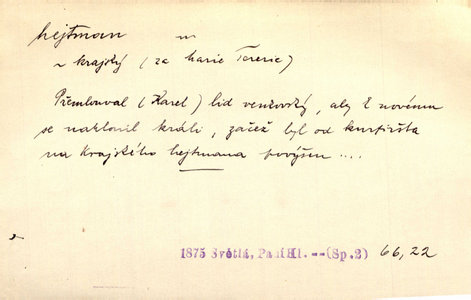 hejtman m
~ krajský (za Marie Terezie)
Přemlouval (Karel) lid venkovský, aby k novému
se naklonil králi, začež byl od kurfiřta
na krajského hejtmana povýšen ....
1875 Světlá, Paní Hl. -- (Sp.2) 66,22